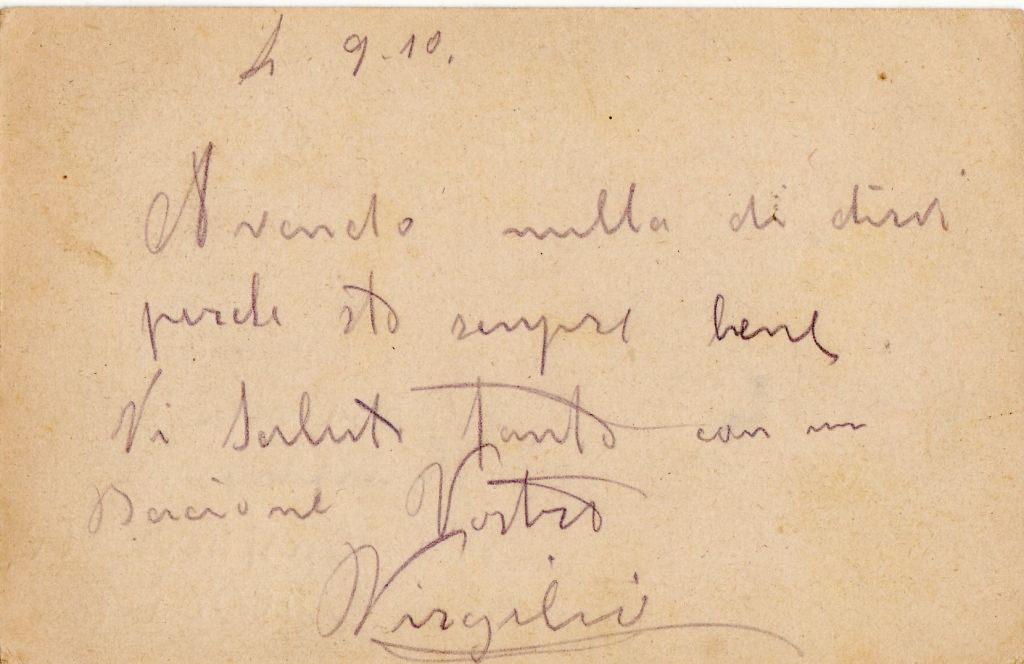 9-10.
Avendo nulla di dirvi
perche sto sempre bene
Vi Saluto tanto con un
Bacione Vostro
Virgilio